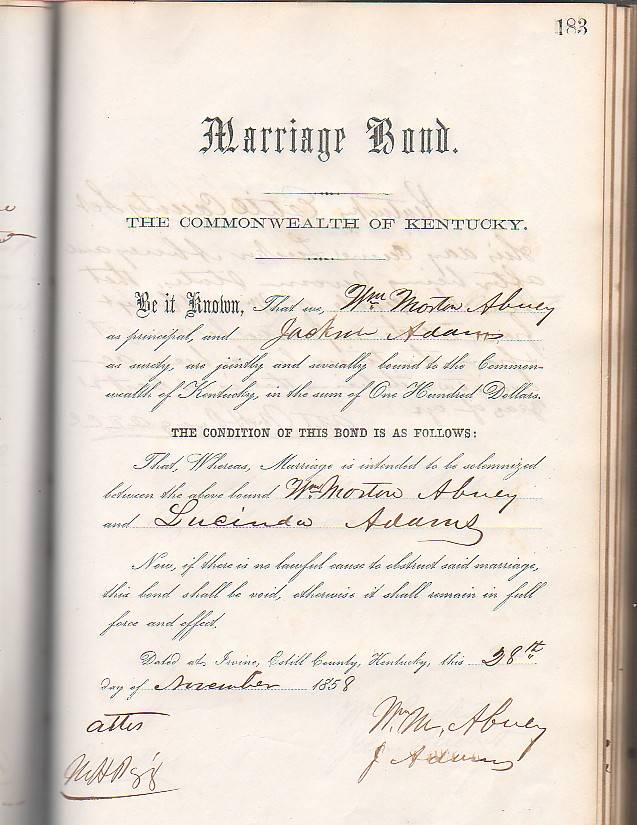 183
Marriage Bond.
THE COMMONWEALTH OF KENTUCKY.
Be it Known, That we, Wm. Morton Abney
as principal, and Jackson Adams
as surety, are jointly and severally bound to the Common-
wealth of Kentucky, in the sum of One Hundred Dollars.
THE CONDITION OF THIS BOND IS AS FOLLOWS:
That, Whereas, Marriage is intended to be solemnized
between the above bound Wm Morton Abney
and Lucinda Adams
Now, if there is no lawful cause to obstruct said marriage,
this bond shall be void, otherwise it shall remain in full
force and effect.
Dated at Irvine, Estill County, Kentucky, this 28th
day of November 1858
attes
Wm M, Abney
J Adams